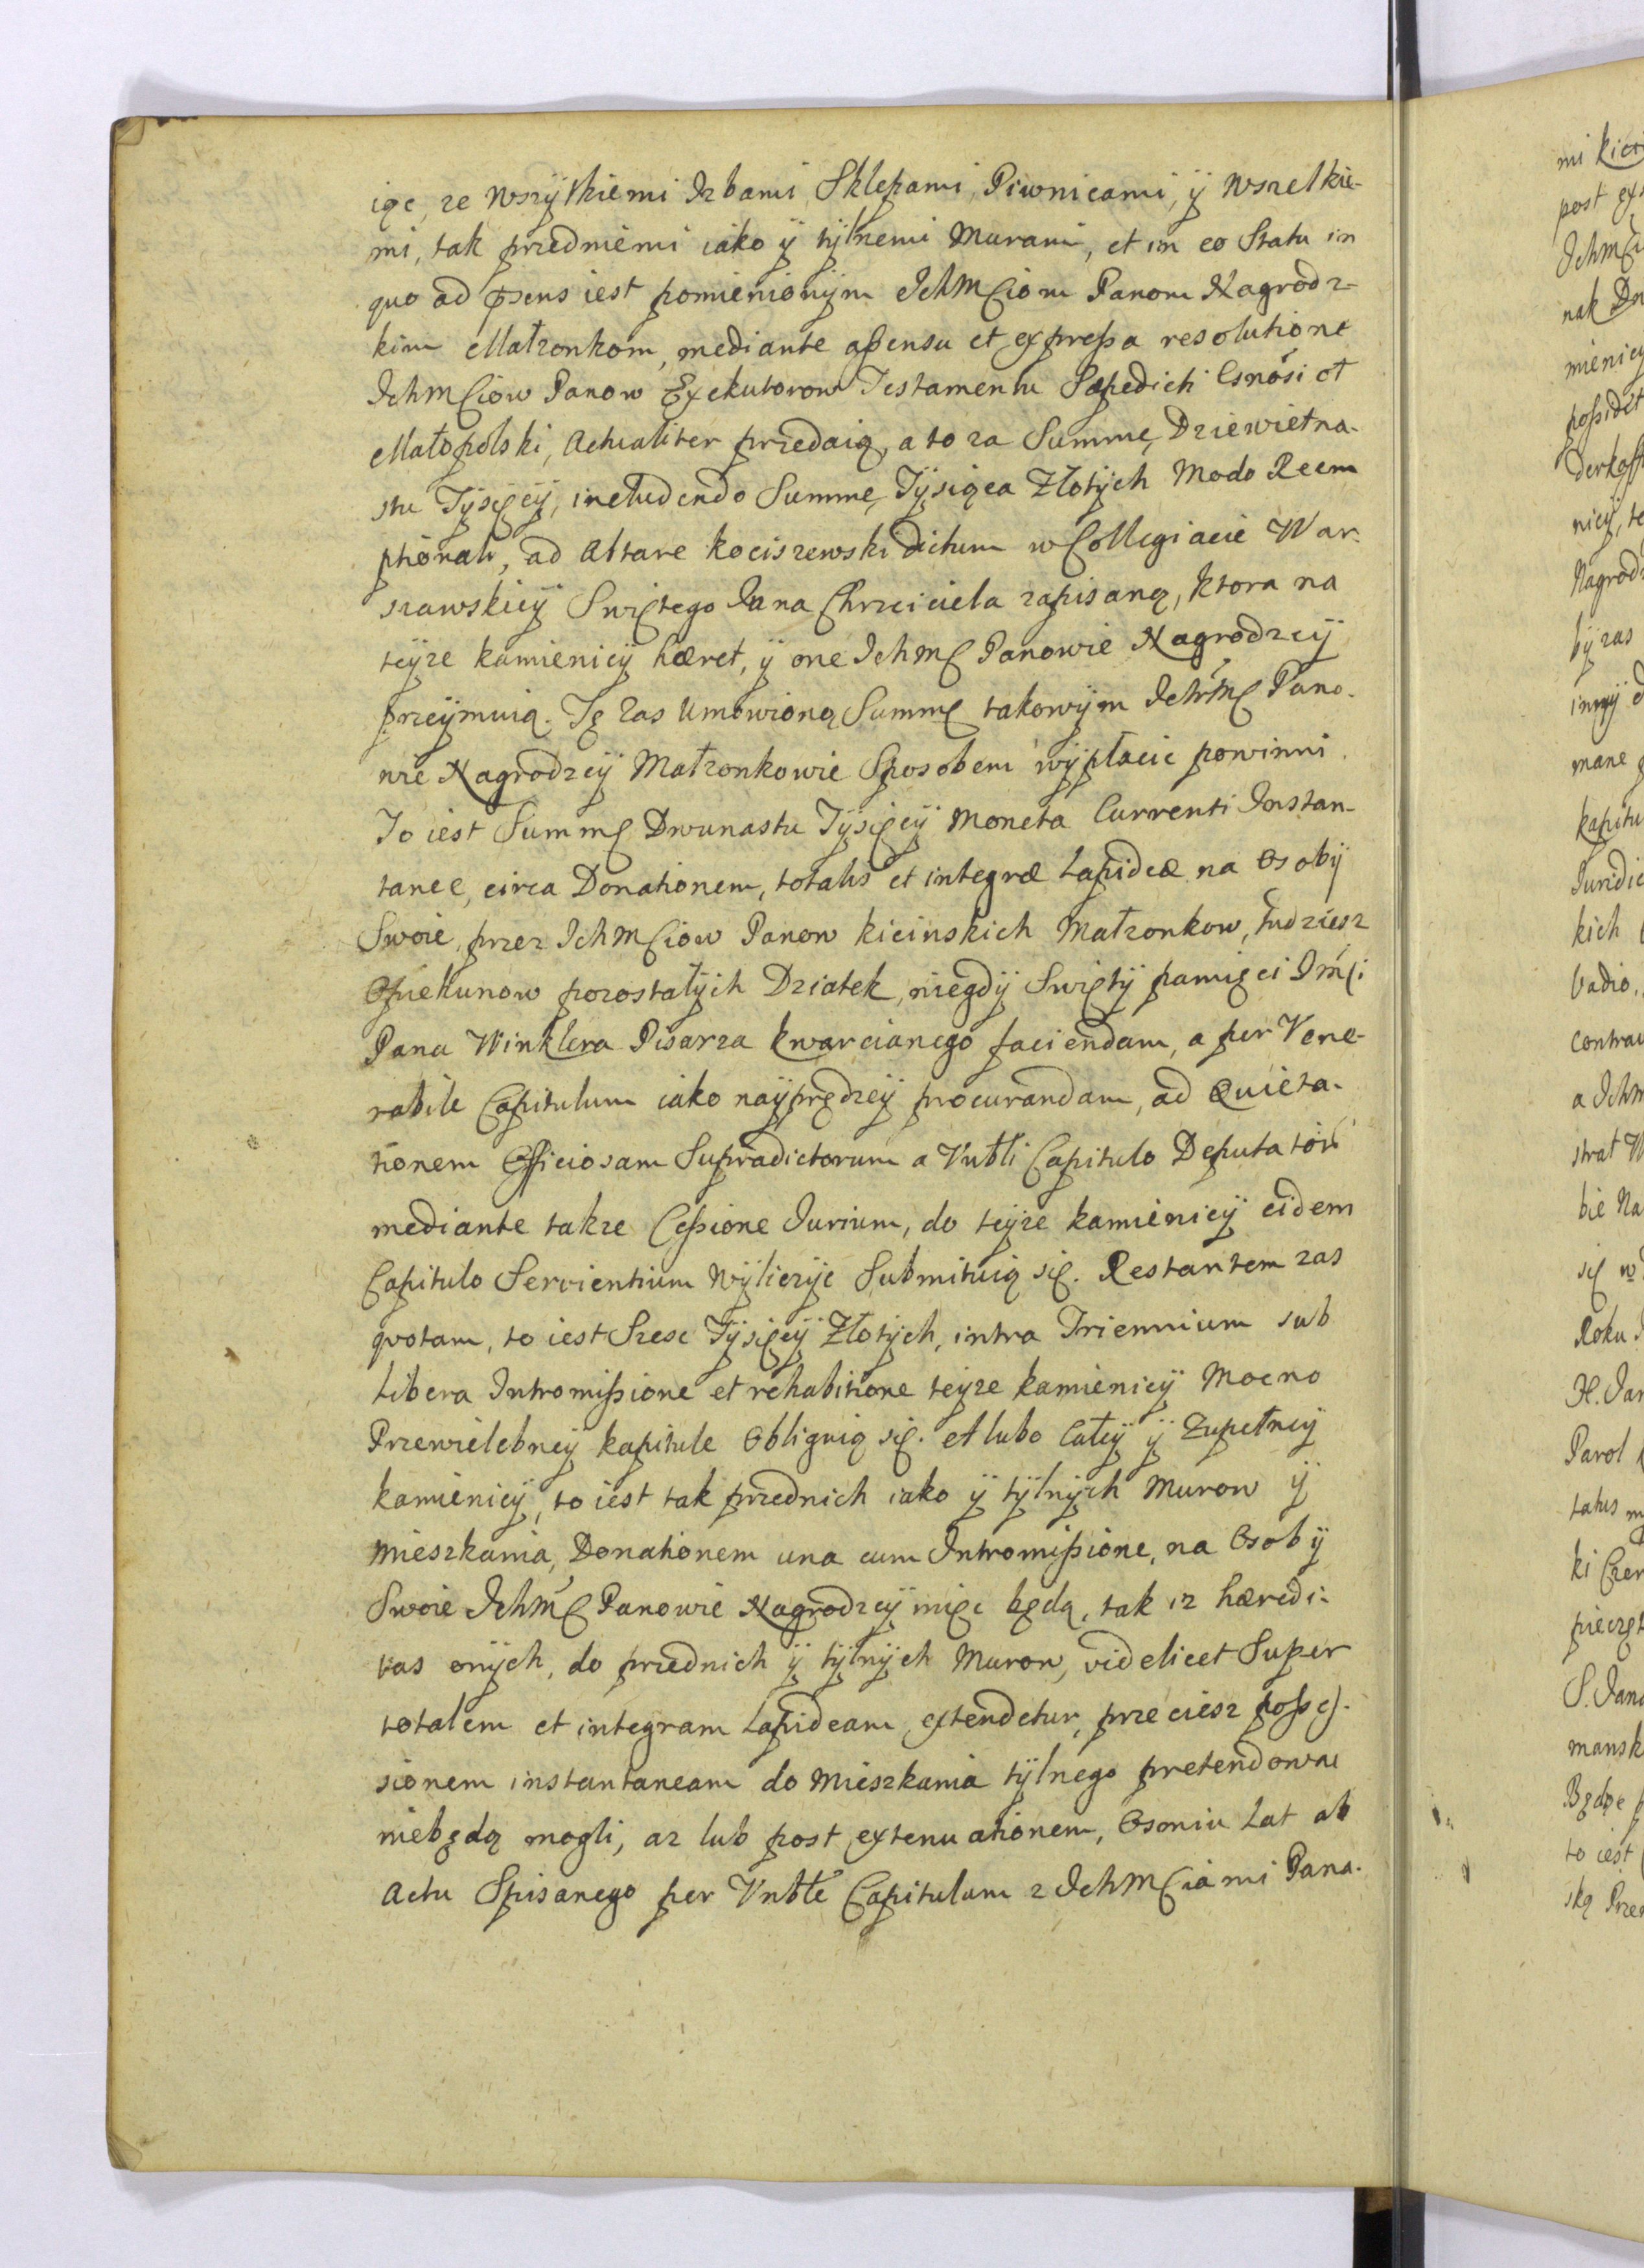 iąc, ze wszÿtkiemi Izbami Sklepami, Piwnicami, ÿ wszelkie-
mi, tak przedniemi iako ÿ tÿlnemi Murami, et in eo Statu in
quo ad psens iest pomienionÿm IchMCiom Panom Nagrodz-
kim Małzonkom, mediante aßensu et expreßa resolutione
IchMCiow Panow Exekutorow Testamentu Sæpedicti
Małopolski, Actualiter przedaią, a to za Summę, Dziewietna-
stu Tÿsięcÿ, includendo Summę, Tÿsiąca Złotÿch Modo Reem
ptionali, ad Altare Kociszewski dictum w Collegiacie War-
szawskieÿ Swiętego Jana Chrzciciela zapisaną, ktora na
teÿze kamienicÿ hæret, ÿ one IchMC Panowie Nagrodzcÿ
przeÿmuią. Tę zas Umowioną Summę takowÿm IchMC Pano-
wie Nagrodzcÿ Małzonkowie Sposobem wÿpłacic powinni.
To iest Summę Dwunastu Tÿsięcÿ Moneta Currenti Instan-
tanee, circa Donationem, totalis et integræ Lapideæ na Osobÿ
Swoie, przez IchMCiow Panow Kicinskich Małzonkow, Tudziesz
Opiekunow pozostałÿch Dziatek, niegdÿ Swiętÿ pamięci JmCi
Pana Winklera Pisarza kwarcianego faciendam, a per Vene-
rabile Capitulum iako naÿprędzeÿ procurandam, ad Quieta-
tionem Officiosam Supradictorum a Vnbli Capitulo Deputator
mediante takze Ceßione Jurium, do teÿze kamienicÿ eidem
Capitulo Servientium wÿliczÿc Submituią się. Restantem zas
quotam, to iest Szesc Tÿsięcÿ Złotÿch, intra Triennium sub
Libera Intromißione et rehabitione teÿze kamienicÿ Mocno
Przewielebneÿ kapitule Obliguią się. A lubo Całeÿ ÿ Zupełneÿ
kamienicÿ, to iest tak przednich iako ÿ tÿlnÿch Murow ÿ
Mieszkania, Donationem una cum Intromißione, na Osobÿ
Swoie IchMC Panowie Nagrodzcÿ miec będą, tak iz hæredi-
tas onÿch, do przednich ÿ tÿlnÿch Murow, videlicet Super
totalem et integram Lapideam, extendetur, przeciesz poßes-
sionem instantaneam do Mieszkania tÿlnego pretendowac
niebędą mogli, az lub post extenuationem, Osmiu Lat ab
Actu Spisanego per Vnble Capitulum z IchMCiami Pana-